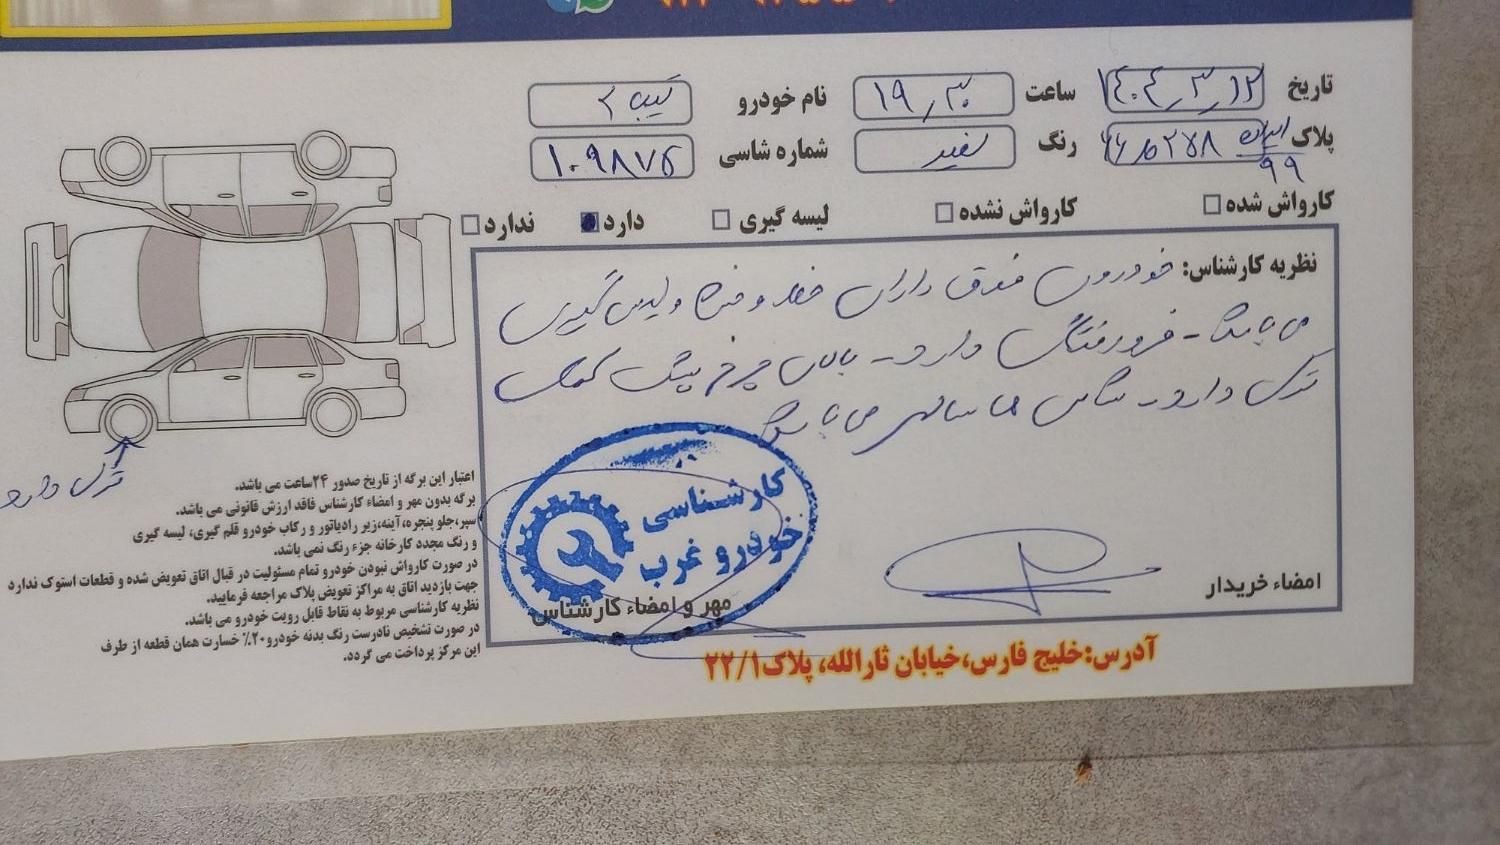 تاریخ ۱۴۰۴٫۳٫۱۲ ساعت ۱۹٫۳۰ نام خودرو تیبا ۲
پلاک ایران ۹۹ رنگ سفید شماره شاسی
کارواش شده کارواش نشده لیسه گیری دارد ندارد
نظریه کارشناس: خودروی فوق دارای خط و خش و لیسه گیری
می باشد - فرورفتگی دارد - بالای چرخ کمی
ترک دارد - شاسی ها سالم می باشد
ترک دارد
کارشناسی
خودرو غرب
مهر و امضاء کارشناس
امضاء خریدار
اعتبار این برگه از تاریخ صدور ۲۴ساعت می باشد.
برگه بدون مهر و امضاء کارشناس فاقد ارزش قانونی می باشد.
سپر،جلو پنجره،آینه،زیر رادیاتور و رکاب خودرو قلم گیری، لیسه گیری
و رنگ مجدد کارخانه جزء رنگ نمی باشد.
در صورت کارواش نبودن خودرو تمام مسئولیت در قبال اتاق تعویض شده و قطعات استوک ندارد
جهت بازدید اتاق به مراکز تعویض پلاک مراجعه فرمایید.
نظریه کارشناسی مربوط به نقاط قابل رویت خودرو می باشد.
در صورت تشخیص نادرست رنگ بدنه خودرو۲۰٪ خسارت همان قطعه از طرف
این مرکز پرداخت می گردد.
آدرس:خلیج فارس،خیابان ثارالله، پلاک۲۲/۱